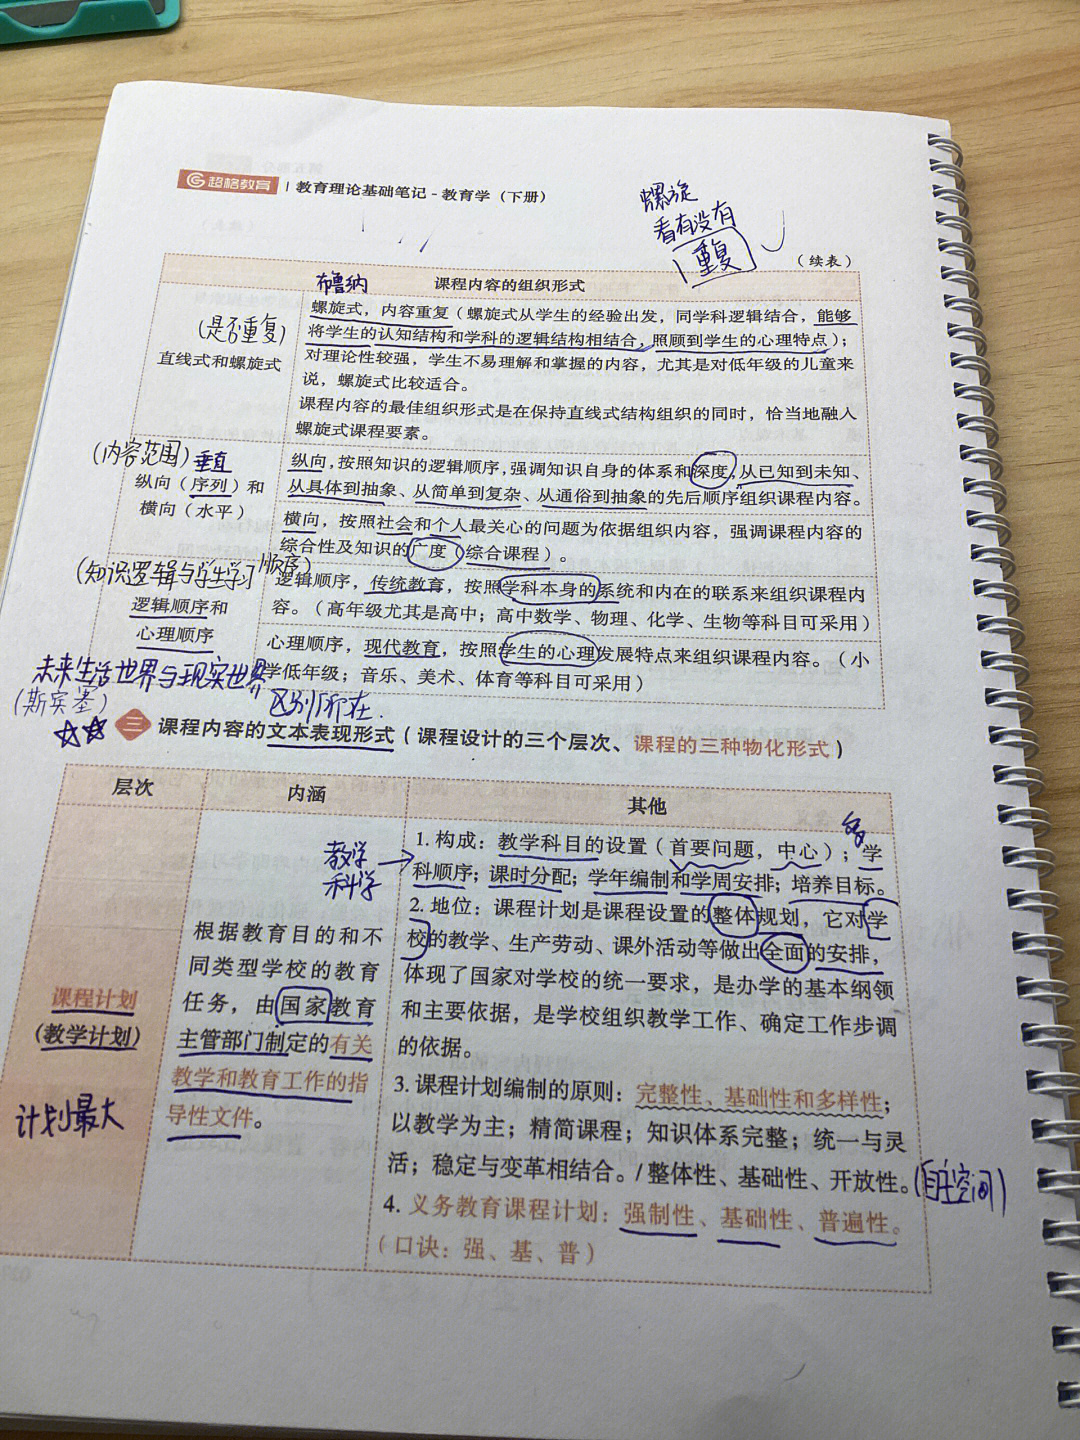 超格教育 | 教育理论基础笔记 - 教育学（下册）
螺旋
看有没有
重复
（续表）
布鲁纳
课程内容的组织形式
(是否重复)
直线式和螺旋式
螺旋式，内容重复（螺旋式从学生的经验出发，同学科逻辑结合，能够
将学生的认知结构和学科的逻辑结构相结合，照顾到学生的心理特点）；
对理论性较强，学生不易理解和掌握的内容，尤其是对低年级的儿童来
说，螺旋式比较适合。
课程内容的最佳组织形式是在保持直线式结构组织的同时，恰当地融入
螺旋式课程要素。
(内容范围) 垂直
纵向（序列）和
横向（水平）
纵向，按照知识的逻辑顺序，强调知识自身的体系和深度，从已知到未知、
从具体到抽象、从简单到复杂、从通俗到抽象的先后顺序组织课程内容。
横向，按照社会和个人最关心的问题为依据组织内容，强调课程内容的
综合性及知识的广度（综合课程）。
(知识逻辑与学生学习顺序)
逻辑顺序和
心理顺序
逻辑顺序，传统教育，按照学科本身的系统和内在的联系来组织课程内
容。（高年级尤其是高中；高中数学、物理、化学、生物等科目可采用）
心理顺序，现代教育，按照学生的心理发展特点来组织课程内容。（小
学低年级；音乐、美术、体育等科目可采用）
未来生活世界与现实世界
(斯宾塞)
区别所在.
三 课程内容的文本表现形式（课程设计的三个层次、课程的三种物化形式）
层次
内涵
其他
课程计划
(教学计划)
计划最大
根据教育目的和不
同类型学校的教育
任务，由国家教育
主管部门制定的有关
教学和教育工作的指
导性文件。
教学
科学
1. 构成：教学科目的设置（首要问题，中心）；学
科顺序；课时分配；学年编制和学周安排；培养目标。
2. 地位：课程计划是课程设置的整体规划，它对学
校的教学、生产劳动、课外活动等做出全面的安排，
体现了国家对学校的统一要求，是办学的基本纲领
和主要依据，是学校组织教学工作、确定工作步调
的依据。
3. 课程计划编制的原则：完整性、基础性和多样性；
以教学为主；精简课程；知识体系完整；统一与灵
活；稳定与变革相结合。/ 整体性、基础性、开放性。
4. 义务教育课程计划：强制性、基础性、普遍性。
（口诀：强、基、普）